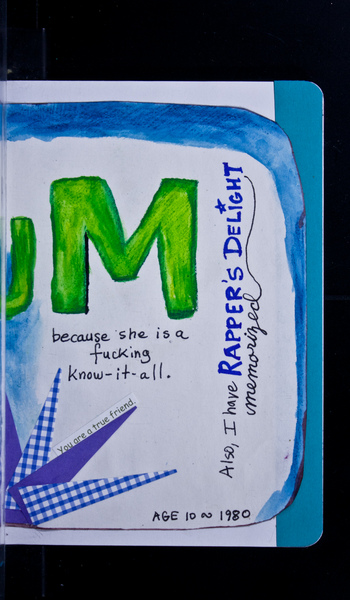 UM
because she is a
fucking
know-it-all.
You are a true friend.
Also, I have RAPPER'S DELIGHT
memorized
AGE 10 ~ 1980